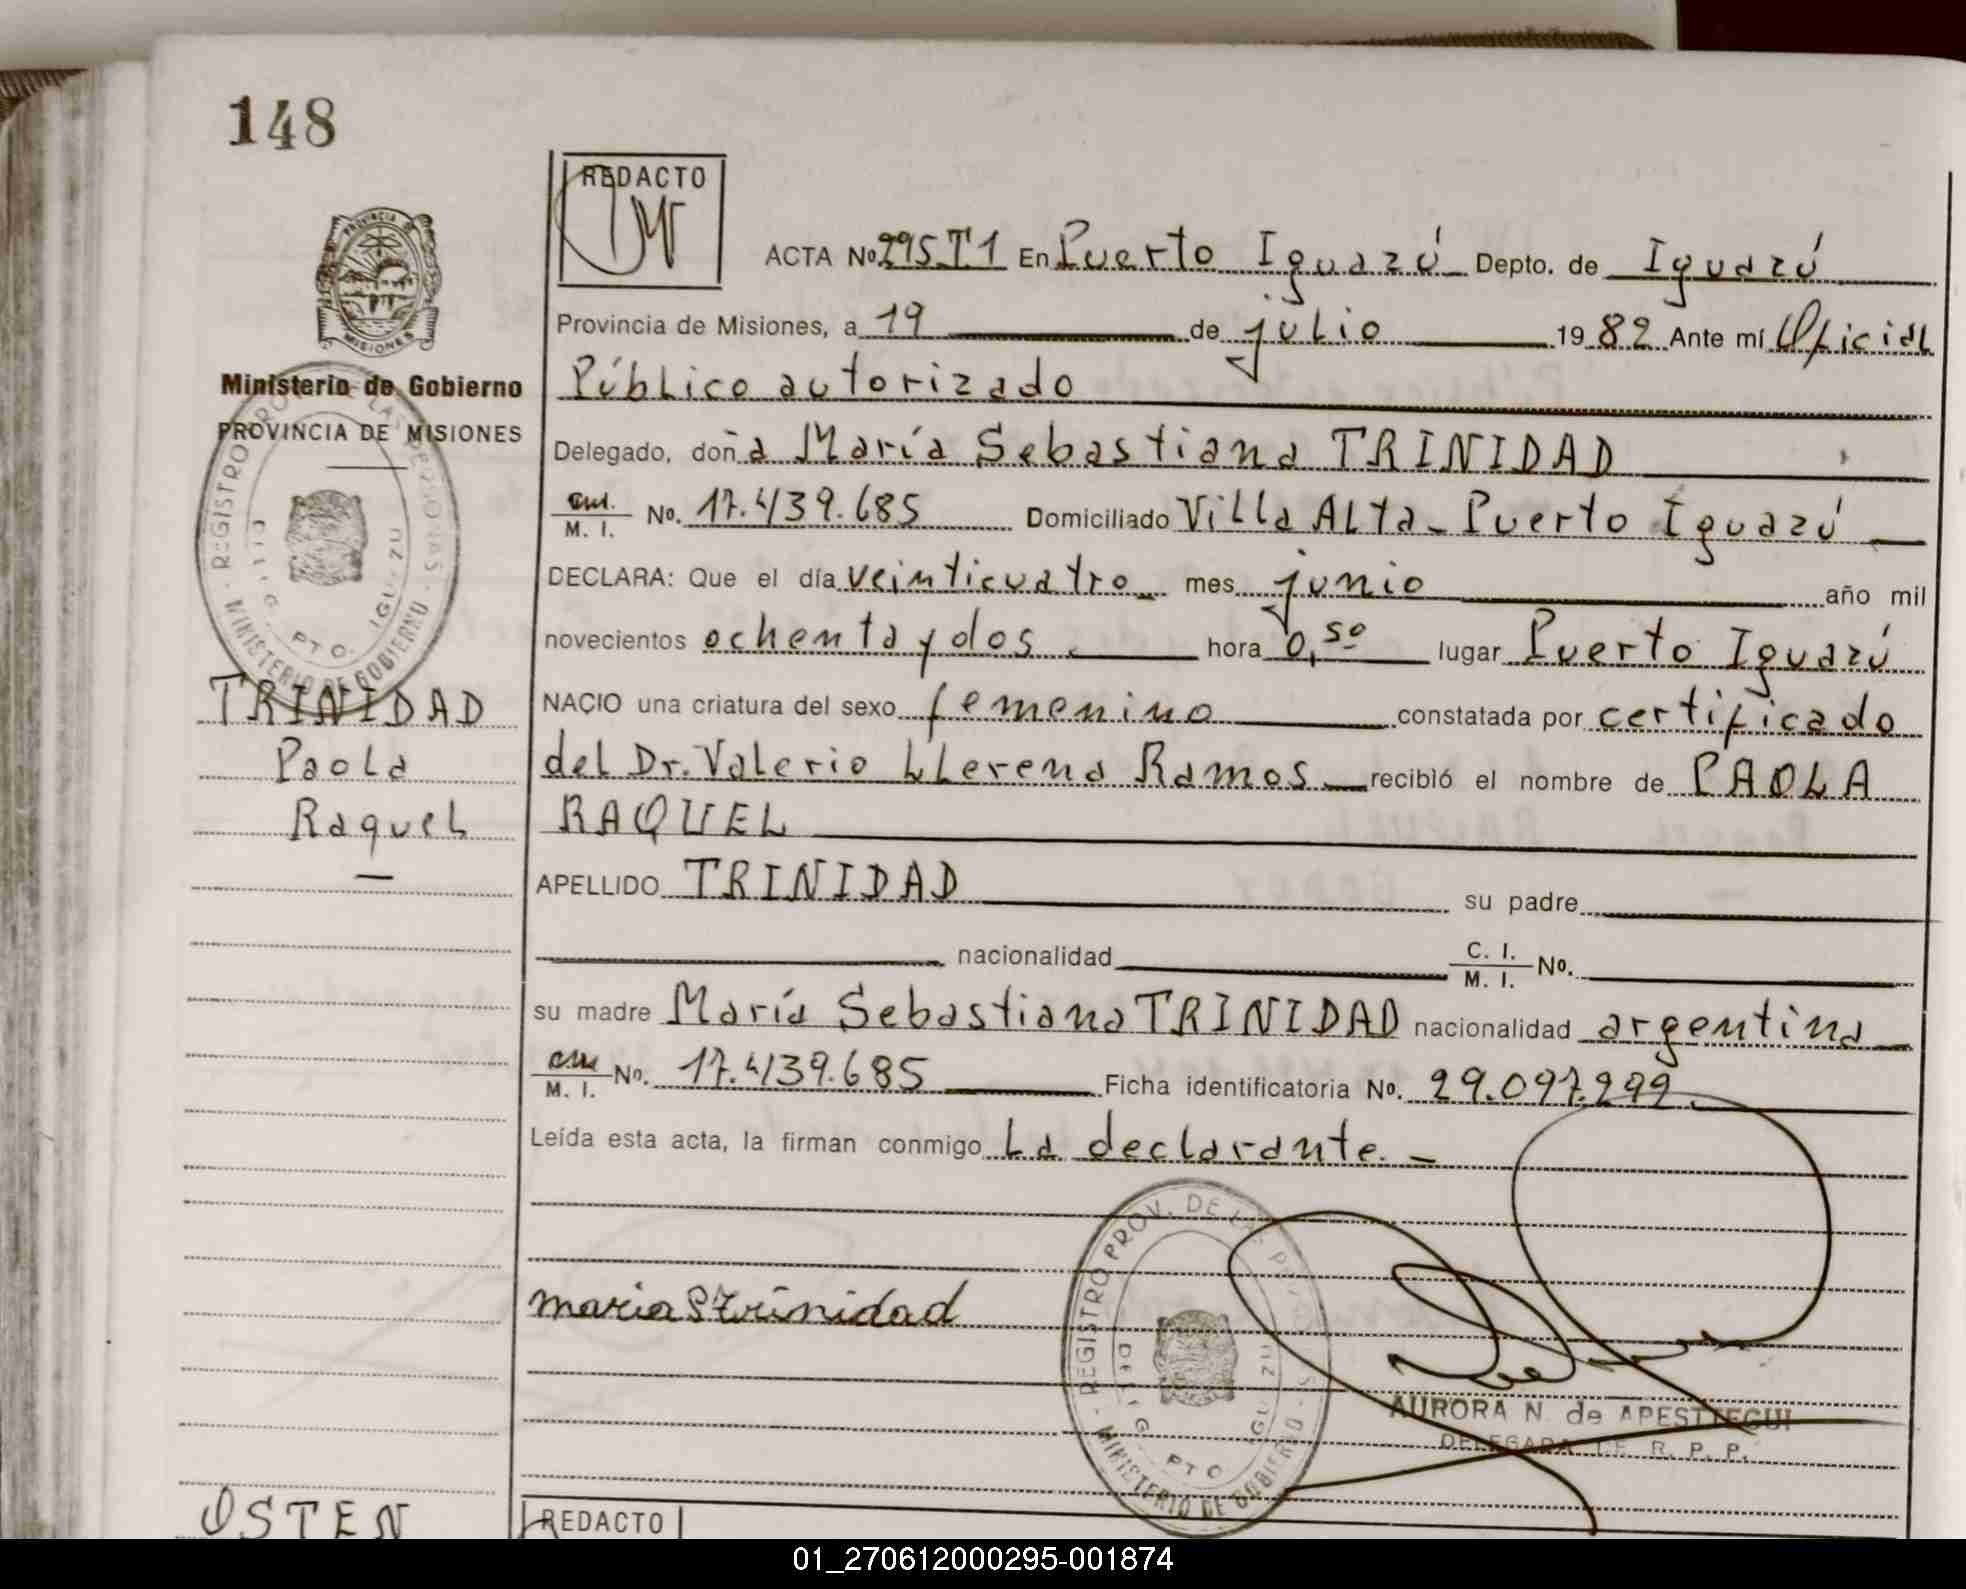 148
REDACTO
PROVINCIA DE MISIONES
ACTA No 295 T1 En Puerto Iguazú Depto. de Iguazú
Provincia de Misiones, a 19 de julio 1982 Ante mí Oficial
Ministerio de Gobierno
Público autorizado
PROVINCIA DE MISIONES
Delegado, doña María Sebastiana TRINIDAD
M. I. No. 17.439.685 Domiciliado Villa Alta - Puerto Iguazú
DECLARA: Que el día veinticuatro mes junio año mil
novecientos ochenta y dos hora 0,50 lugar Puerto Iguazú
MINISTERIO DE GOBIERNO
TRINIDAD
NACIO una criatura del sexo femenino constatada por certificado
Paola
del Dr. Valerio Llerena Ramos recibió el nombre de PAOLA
Raquel
RAQUEL
APELLIDO TRINIDAD su padre
nacionalidad C. I. M. I. No.
su madre María Sebastiana TRINIDAD nacionalidad argentina
M. I. No. 17.439.685 Ficha identificatoria No. 29.097.299
Leída esta acta, la firman conmigo La declarante. -
maria S trinidad
REGISTRO PROV. DE LAS
DELEG. PTO. IGUAZU
MINISTERIO DE GOBIERNO
AURORA N. de APESTEGUI
DELEGADA R. P. P.
OSTEN
REDACTO
01_270612000295-001874